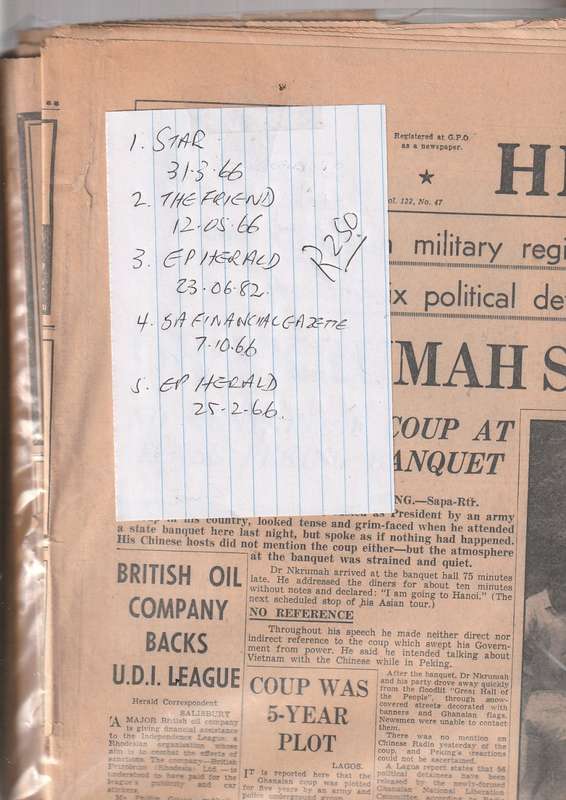 1. STAR
31·3·66
2. THE FRIEND
12·05·66
3. EP HERALD
23·06·82.
4. SA FINANCIAL GAZETTE
7·10·66
5. EP HERALD
25-2-66.
R250
Registered at G.P.O.
as a newspaper.
ol. 122, No. 47
military regi
ix political de
MAH S
COUP AT
ANQUET
NG.—Sapa-Rtr.
as President by an army
in his country, looked tense and grim-faced when he attended
a state banquet here last night, but spoke as if nothing had happened.
His Chinese hosts did not mention the coup either—but the atmosphere
at the banquet was strained and quiet.
Dr Nkrumah arrived at the banquet hall 75 minutes
late. He addressed the diners for about ten minutes
without notes and declared: "I am going to Hanoi." (The
next scheduled stop of his Asian tour.)
NO REFERENCE
Throughout his speech he made neither direct nor
indirect reference to the coup which swept his Govern-
ment from power. He said he intended talking about
Vietnam with the Chinese while in Peking.
BRITISH OIL
COMPANY
BACKS
U.D.I. LEAGUE
Herald Correspondent
SALISBURY
A MAJOR British oil company
is giving financial assistance
to the Independence League, a
Rhodesian organisation whose
aim is to combat the effects of
sanctions. The company—British
Petroleum (Rhodesia) Ltd.—is
understood to have paid for the
league's publicity and car
stickers.
COUP WAS
5-YEAR
PLOT
LAGOS.
IT is reported here that the
Ghanaian coup was plotted
for five years by an army and
police underground
After the banquet, Dr Nkrumah
and his party drove away quickly
from the floodlit "Great Hall of
the People", through snow-
covered streets decorated with
banners and Ghanaian flags.
Newsmen were unable to contact
them.
There was no mention on
Chinese Radio yesterday of the
coup, and Peking's reactions
could not be ascertained.
A Lagos report states that 56
political detainees have been
released by the newly-formed
Ghanaian National Liberation